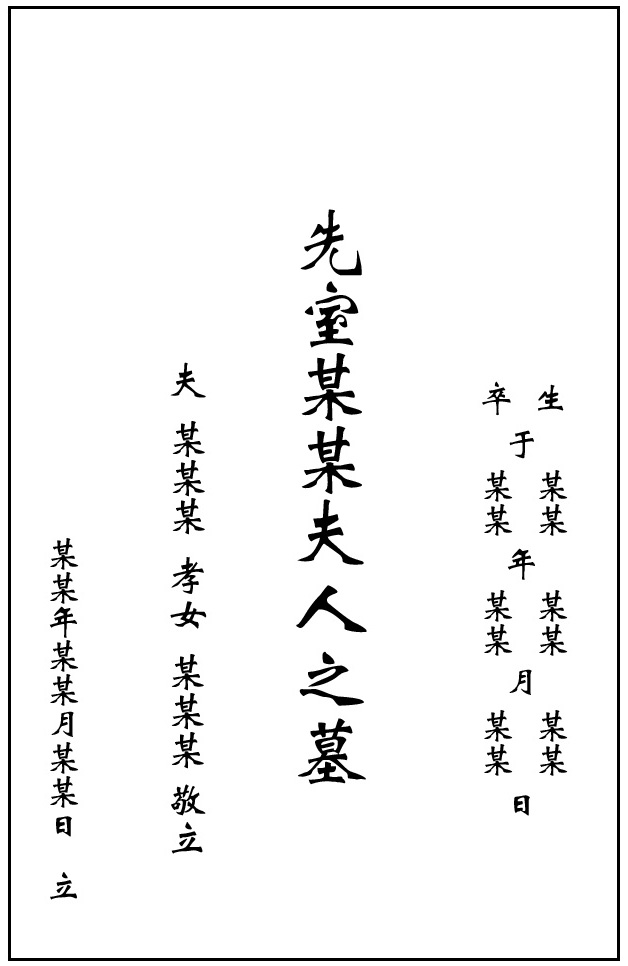 生于某某年某某月某某日
卒于某某年某某月某某日
先室某某夫人之墓
夫 某某某 孝女 某某某 敬立
某某年某某月某某日 立